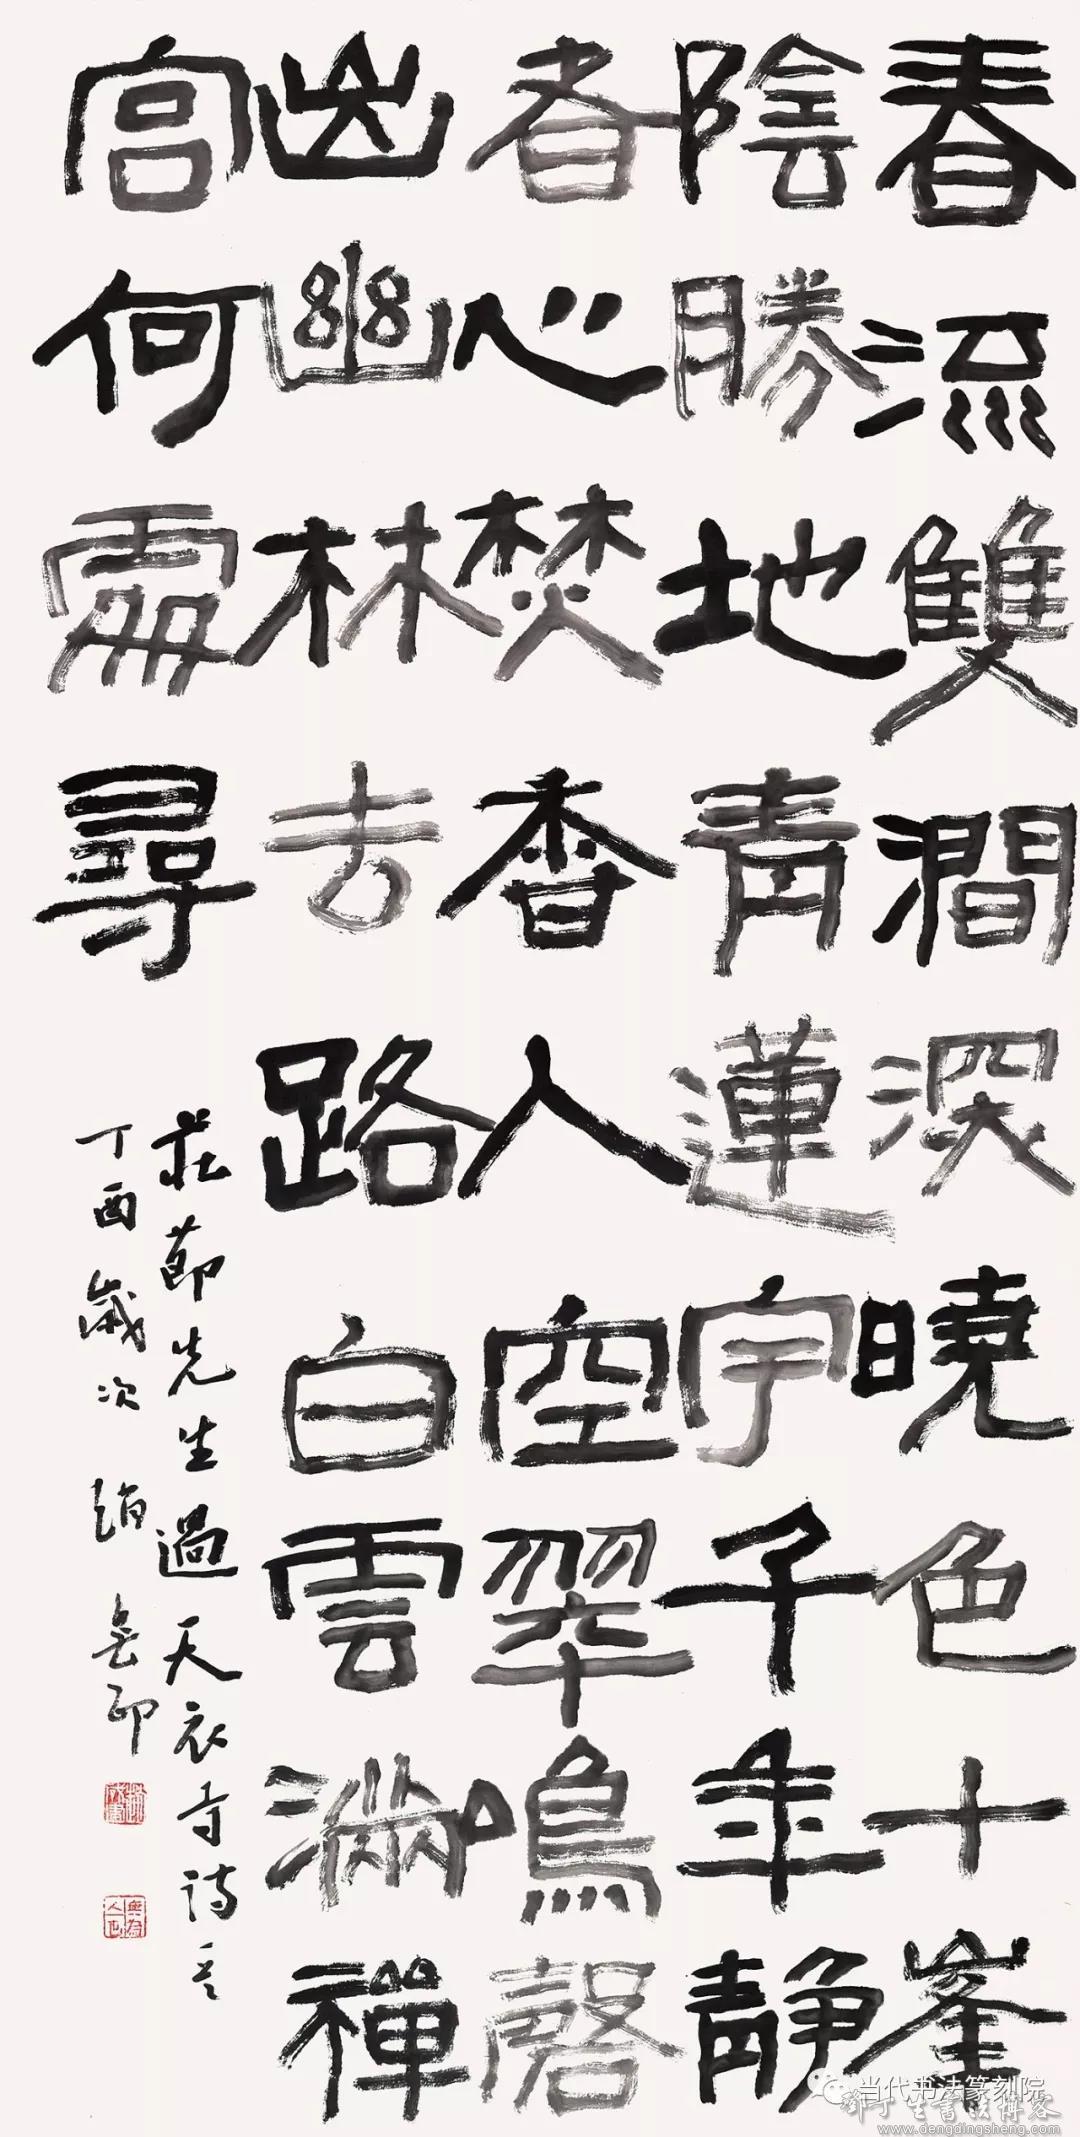 春流雙澗深曉色十峯
陰勝地青蓮宇千年靜
者心焚香人空翠鳴磬
出幽林去路白雲滿禪
宮何處尋
莊節先生過天衣寺詩
丁酉歲次
当代书法篆刻院
鄧丁生書法博客
www.dengdingsheng.com